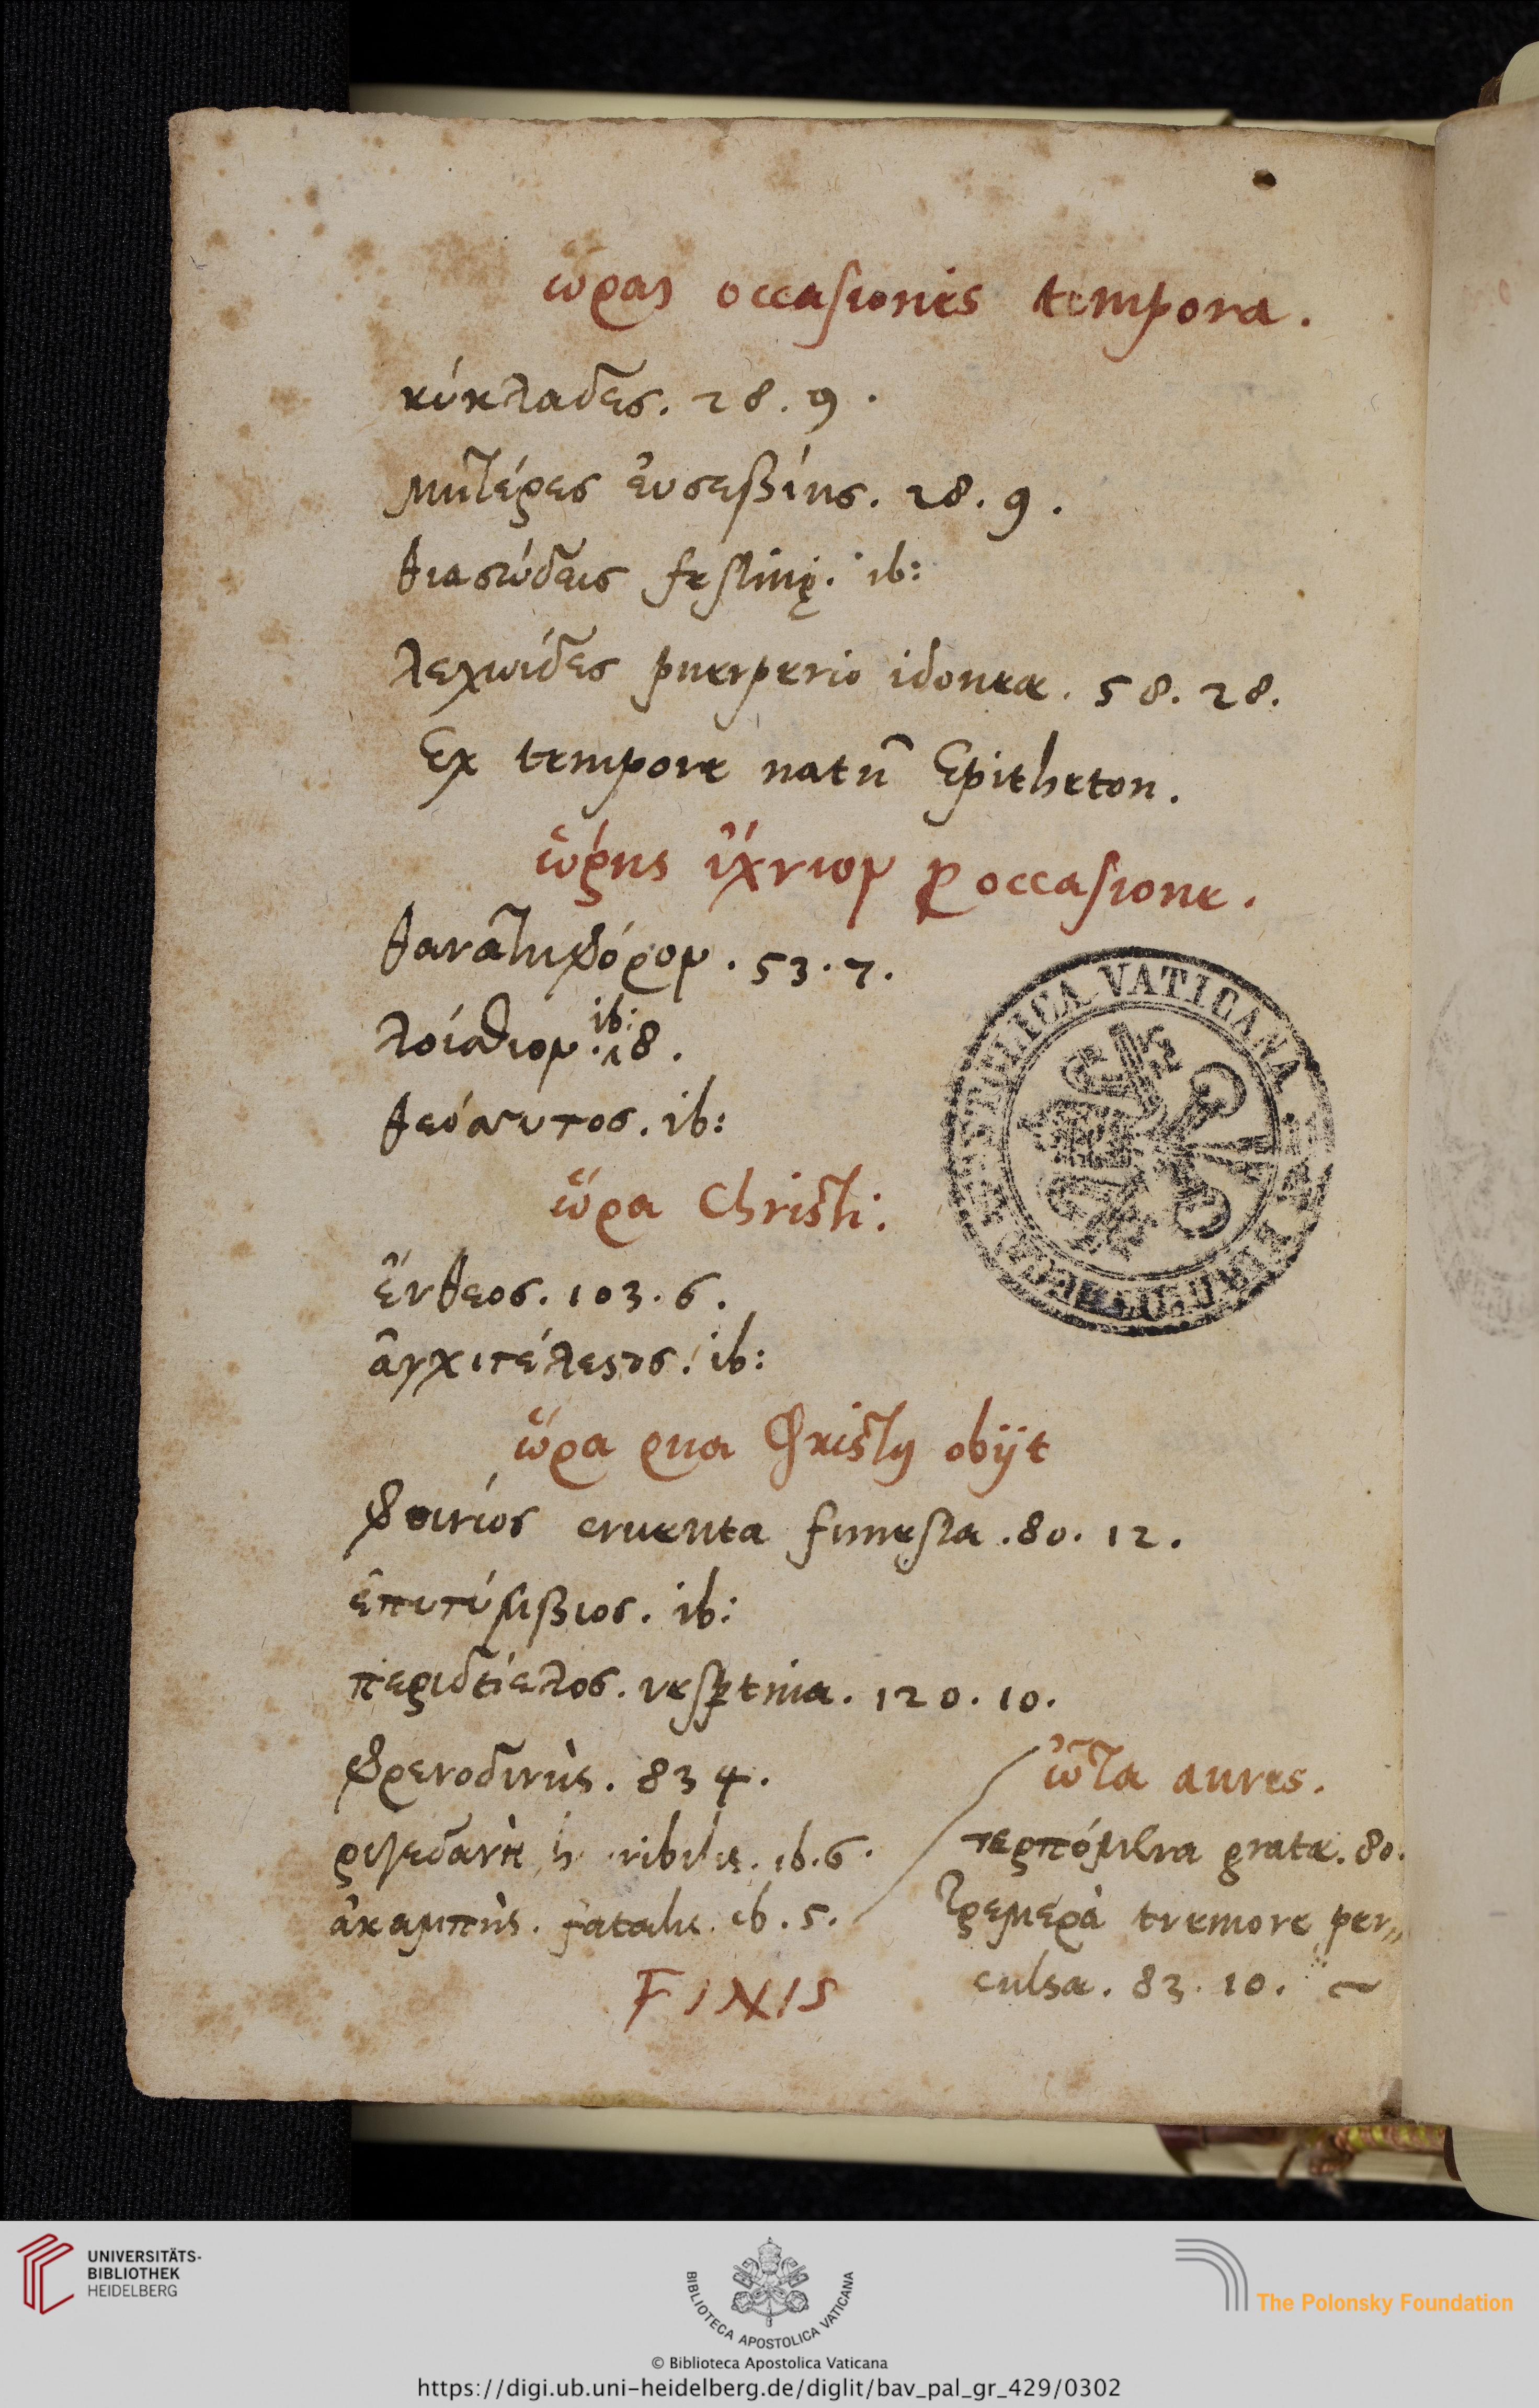 ὥραι occasiones tempora.
κύκλαδες. 28. 9.
μητέρες ἐυσεβίης. 28. 9.
θιασώδεις festinę. ib:
λεχωίδες puerperio idoneae. 58. 28.
Ex tempore natũ Epitheton.
ὥρης ἴχνιον ꝑ occasione.
θανατηφόρον. 53. 7.
λοίσθιον. ib: 18.
θεόσσυτος. ib:
ὥρα Christi.
ἔνθεος. 103. 6.
ἀρχιτέλεστος. ib:
ὥρα qua Christꝰ obijt
φοινίος cruenta funesta. 80. 12.
ἐπιτύμβιος. ib:
περιδείελος. vesꝑtina. 120. 10.
φρενοδινὴς. 83 4.
ῥιγεδανὴ ib. 6.
ἀκαμπὴς. fatalis. ib. 5.
ὦτα aures.
τερπόμενα gratae. 80.
τρεμερὰ tremore per„
culsa. 83. 10. ~
FINIS
VATICANA
UNIVERSITÄTS-
BIBLIOTHEK
HEIDELBERG
BIBLIOTECA APOSTOLICA VATICANA
© Biblioteca Apostolica Vaticana
The Polonsky Foundation
https://digi.ub.uni-heidelberg.de/diglit/bav_pal_gr_429/0302